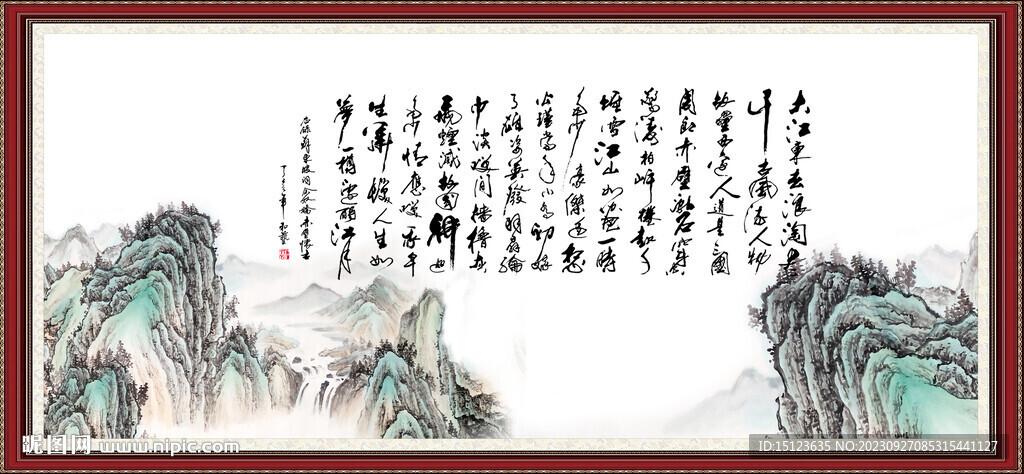 大江東去浪淘盡
千古風流人物
故壘西邊人道是三國
周郎赤壁亂石穿空
驚濤拍岸捲起千
堆雪江山如畫一時
多少豪傑遙想
公瑾當年小喬初嫁
了雄姿英發羽扇綸
巾談笑間檣櫓灰
飛煙滅故國神
多情應笑我早
生華髮人生如
夢一樽還酹江月
錄蘇東坡詞念奴嬌赤壁懷古
年
昵图网 www.nipic.com
ID:15123635 NO:20230927085315441127